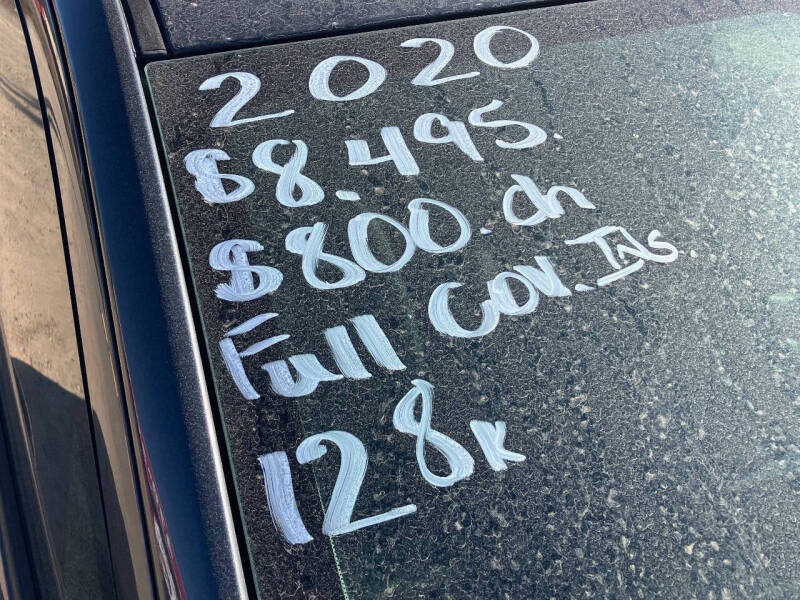 2020
$8.495.
$800.dn
Full Cov. Ins.
128k